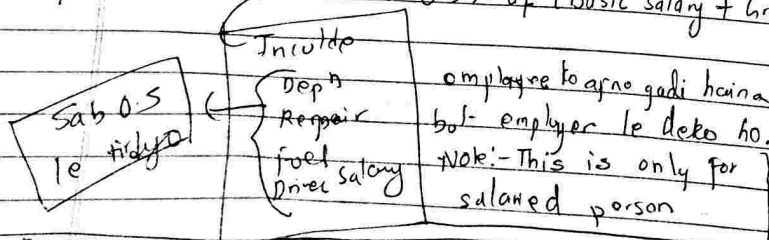 of (basic salary + Gr
Inculde
Depn
Repair
Fuel
Driver Salary
Sab O.S
le tirdyo
employee ko afno gadi haina
bot employer le deko ho.
Note:- This is only for
salaried person